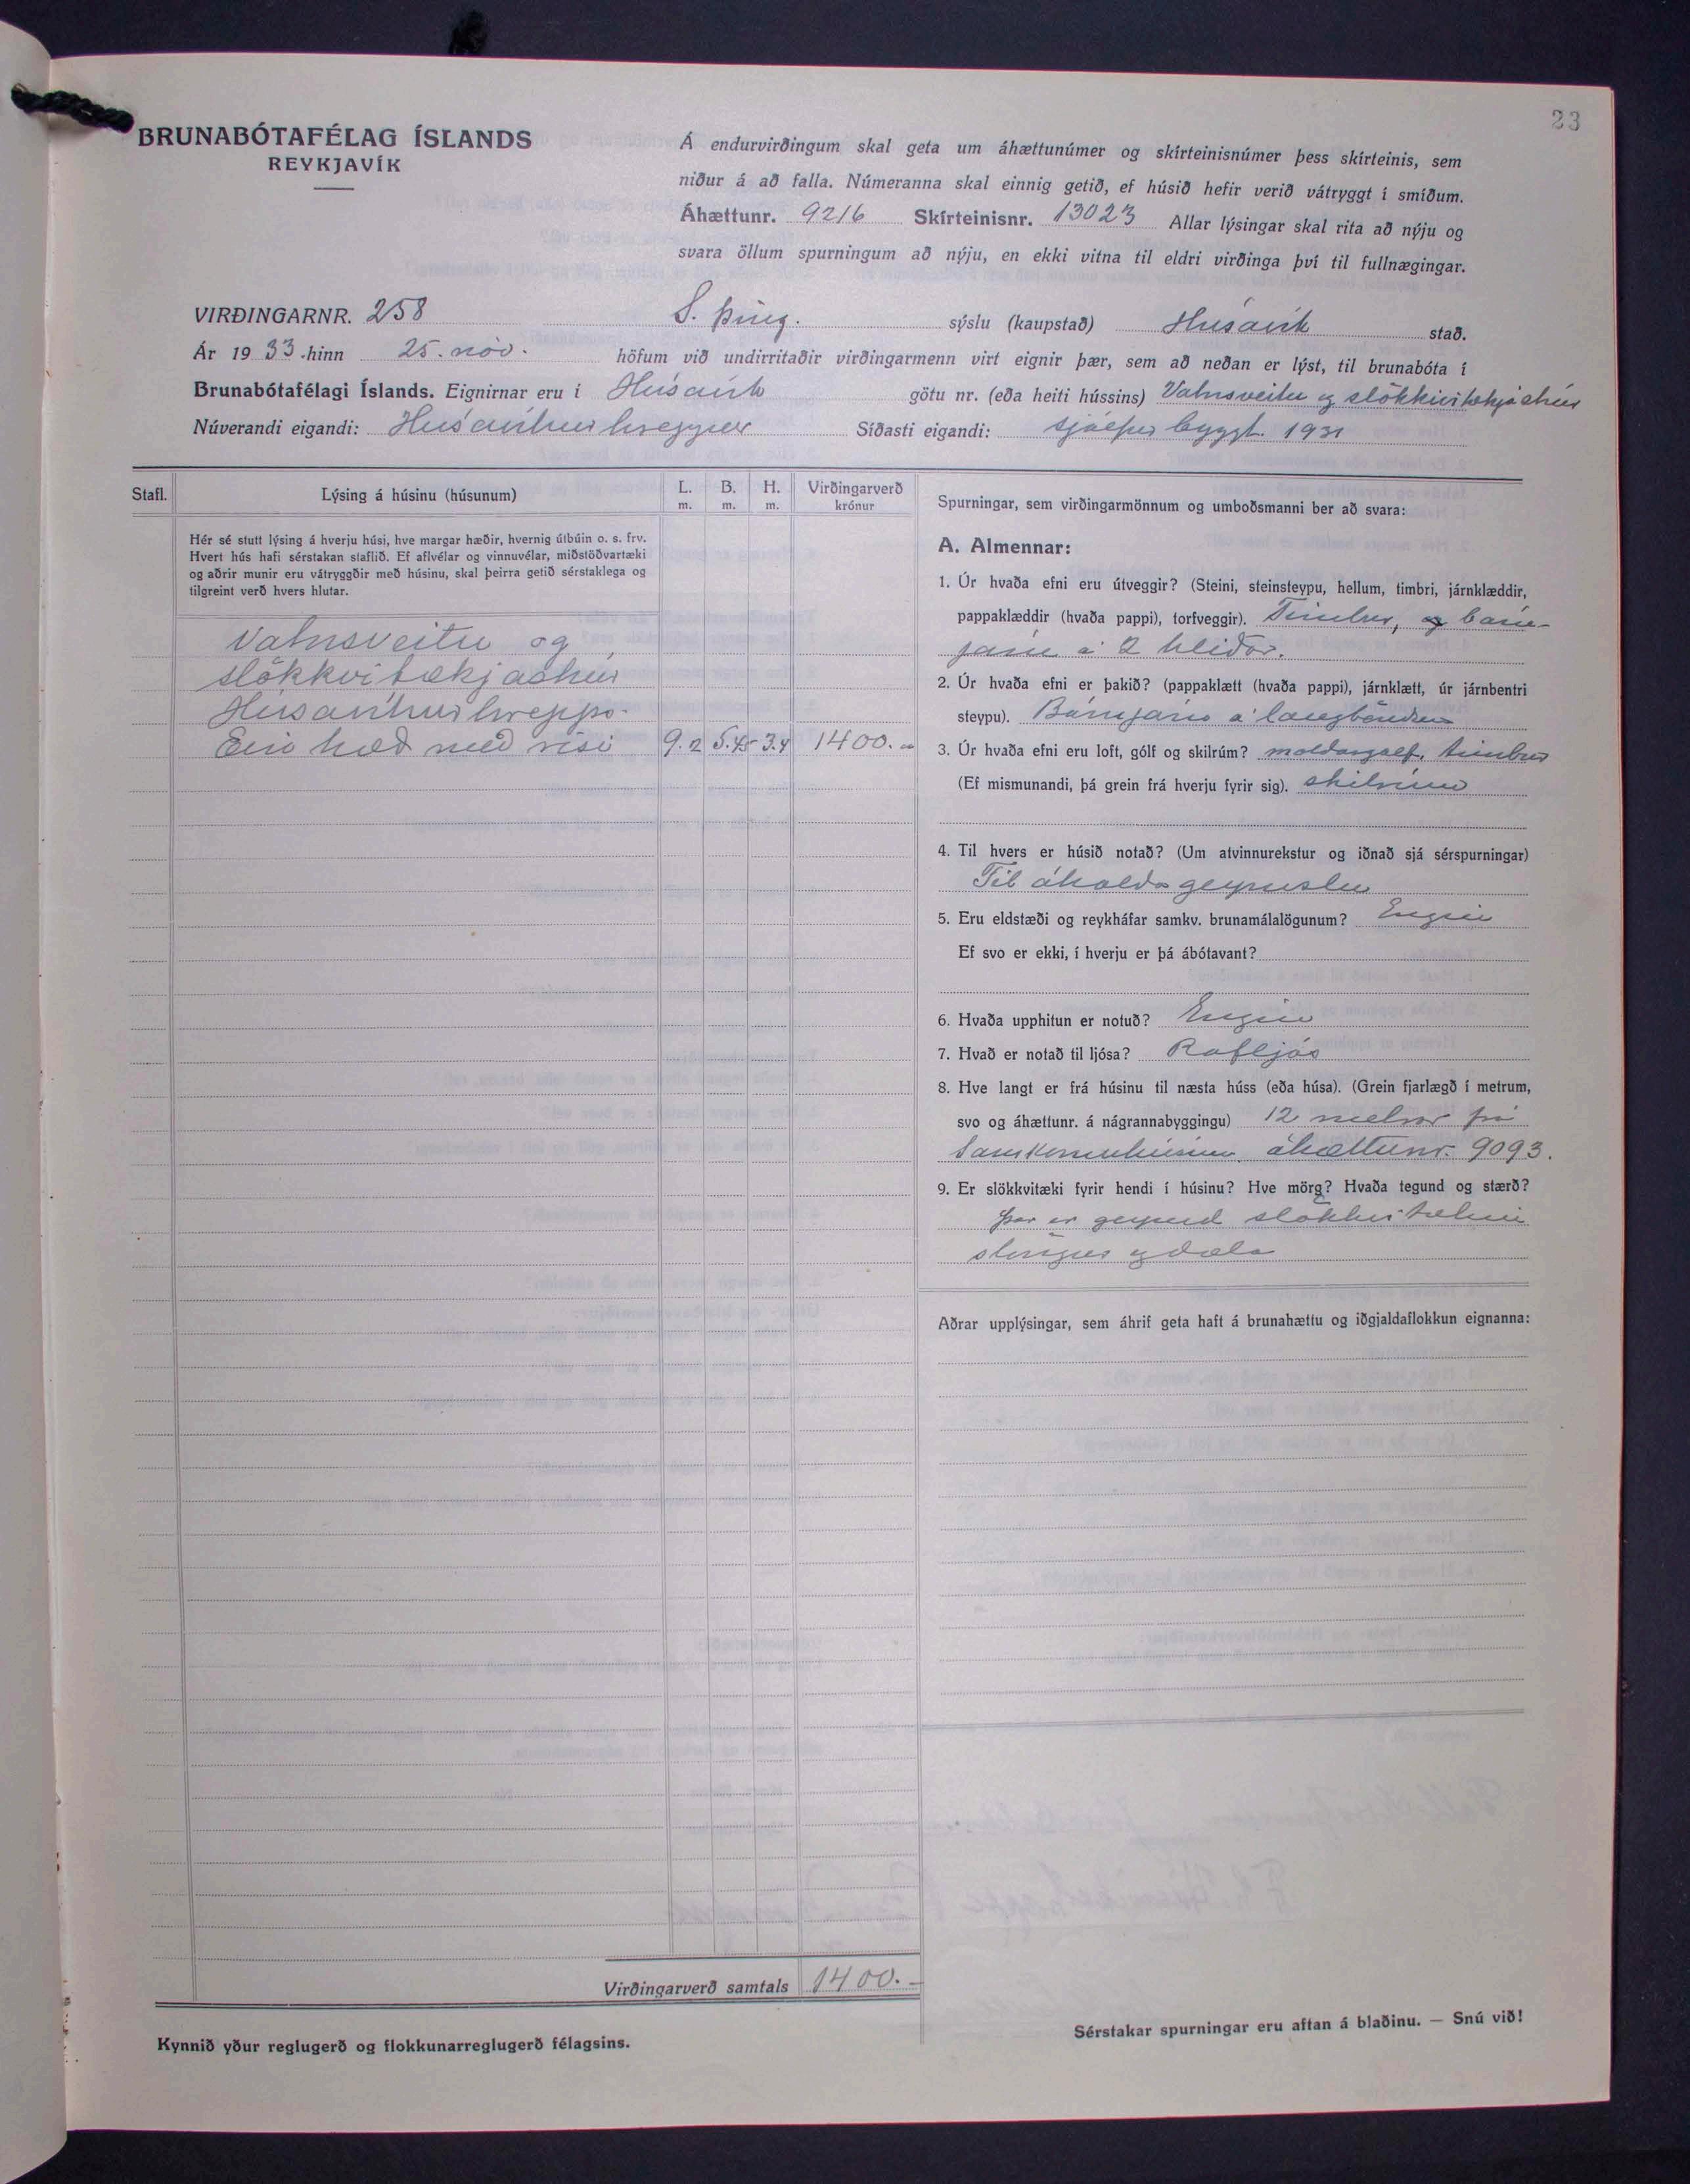 23
BRUNABÓTAFÉLAG ÍSLANDS
REYKJAVÍK
Á endurvirðingum skal geta um áhættunúmer og skírteinisnúmer þess skírteinis, sem
niður á að falla. Númeranna skal einnig getið, ef húsið hefir verið vátryggt í smíðum.
Áhættunr. 9216 Skírteinisnr. 13023 Allar lýsingar skal rita að nýju og
svara öllum spurningum að nýju, en ekki vitna til eldri virðinga því til fullnægingar.
VIRÐINGARNR. 258 S. Þing. sýslu (kaupstað) Húsavík stað.
Ár 1933 hinn 25. nóv. höfum við undirritaðir virðingarmenn virt eignir þær, sem að neðan er lýst, til brunabóta í
Brunabótafélagi Íslands. Eignirnar eru í Húsavík götu nr. (eða heiti hússins) Vatnsveitu og slökkvitækjahús
Núverandi eigandi: Húsavíkurhreppur Síðasti eigandi: sjálfur byggt 1931
Stafl. Lýsing á húsinu (húsunum) L. m. B. m. H. m. Virðingarverð krónur
Hér sé stutt lýsing á hverju húsi, hve margar hæðir, hvernig útbúin o. s. frv.
Hvert hús hafi sérstakan staflið. Ef aflvélar og vinnuvélar, miðstöðvartæki
og aðrir munir eru vátryggðir með húsinu, skal þeirra getið sérstaklega og
tilgreint verð hvers hlutar.
Vatnsveitu og
slökkvitækjahús
Húsavíkurhrepps.
Ein hæð með risi 9.2 5.45 3.4 1400.-
Virðingarverð samtals 1400.-
Kynnið yður reglugerð og flokkunarreglugerð félagsins.
Spurningar, sem virðingarmönnum og umboðsmanni ber að svara:
A. Almennar:
1. Úr hvaða efni eru útveggir? (Steini, steinsteypu, hellum, timbri, járnklæddir,
pappaklæddir (hvaða pappi), torfveggir). Timbur, og báru-
járn á 2 hliðar.
2. Úr hvaða efni er þakið? (pappaklætt (hvaða pappi), járnklætt, úr járnbentri
steypu). Bárujárn á langböndum
3. Úr hvaða efni eru loft, gólf og skilrúm? moldargólf, timbur
(Ef mismunandi, þá grein frá hverju fyrir sig). skilrúm
4. Til hvers er húsið notað? (Um atvinnurekstur og iðnað sjá sérspurningar)
Til áhalda geymslu
5. Eru eldstæði og reykháfar samkv. brunamálalögunum? Engin
Ef svo er ekki, í hverju er þá ábótavant?
6. Hvaða upphitun er notuð? Engin
7. Hvað er notað til ljósa? Rafljós
8. Hve langt er frá húsinu til næsta húss (eða húsa). (Grein fjarlægð í metrum,
svo og áhættunr. á nágrannabyggingu) 12 metrar frá
Samkomuhúsinu áhættunr. 9093.
9. Er slökkvitæki fyrir hendi í húsinu? Hve mörg? Hvaða tegund og stærð?
Þar er geymd slökkvitækin
slöngur og dæla
Aðrar upplýsingar, sem áhrif geta haft á brunahættu og iðgjaldaflokkun eignanna:
Sérstakar spurningar eru aftan á blaðinu. — Snú við!